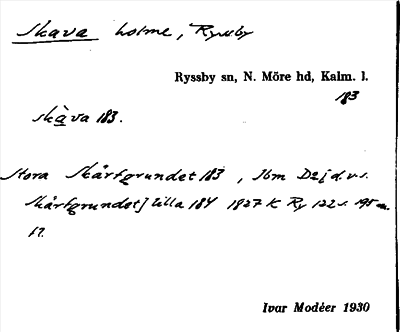 Skava holme, Ryssby
Ryssby sn, N. Möre hd, Kalm. l.
183
skàva 183.
Stora Skärtgrundet 183 , Ibm D2j d.v.s.
Skärtgrundet] Lilla 184 1827 K Ry 122 s. 195
17.
Ivar Modéer 1930